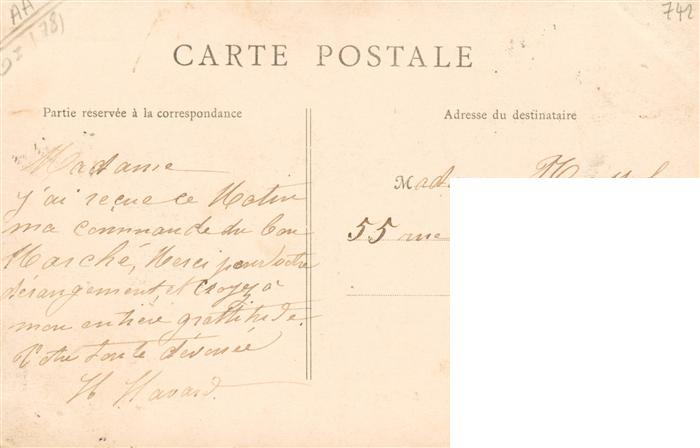 AA
(78)
742
CARTE POSTALE
Partie reservée à la correspondance
Adresse du destinataire
Madame
j'ai reçue ce Matin
ma commande du bon
Marché, Merci pour votre
dérangement, et croyez à
mon entière grattitude.
Votre toute dévouée
H Havard.
55 rue